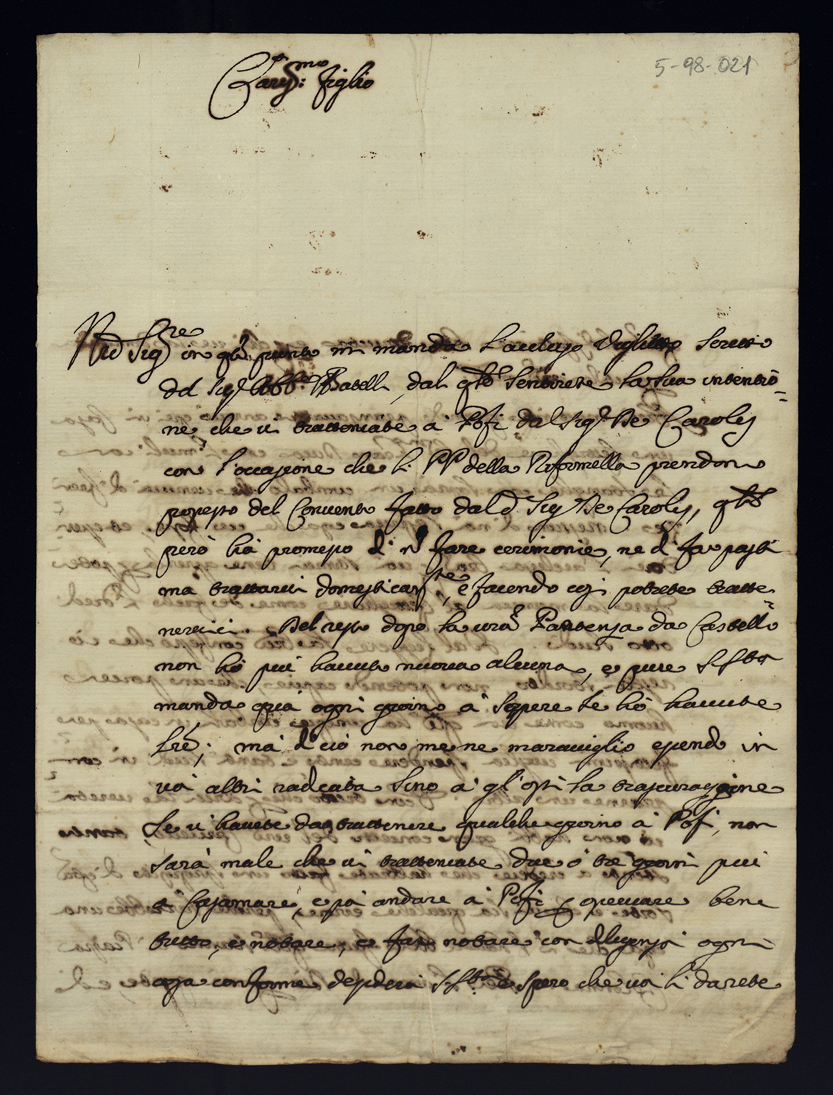 Cariss:mo figlio
5-98-021
Nel Sig.re in q.to punto mi manda l'acluso Viglietto scritto
del Sig.r Abb.e dal q.le sentirete la sua intentio=
ne che vi tratteniate a Pofi dal Sig.r De Carolis
con l'occasione che li PP della Riformella prendono
possesso del Convento fatto dal d.o Sig.r De Carolis, q.le
però hà promesso di n. fare cerimonie, ne di far pasti
ma trattarvi domesticam.te, e facendo cosi potrete tratte
nervici. Del resto dopo la vr̃a Partenza da Castello
non hò piu havuto nuova alcuna, e pure
manda quà ogni giorno à sapere se hò havute
lr̃e; mà di ciò non me ne maraviglio essendo in
voi altri radicata sino à gl'ossi la trascuraggine
Se vi havete da trattenere qualche giorno à Pofi, non
sarà male che vi tratteniate due ò tre giorni piu
à Casamare, e poi andare à Pofi osservare bene
tutto, e notare, e far notare con diligenza ogni
cosa conforme desidera e spero che voi li darete